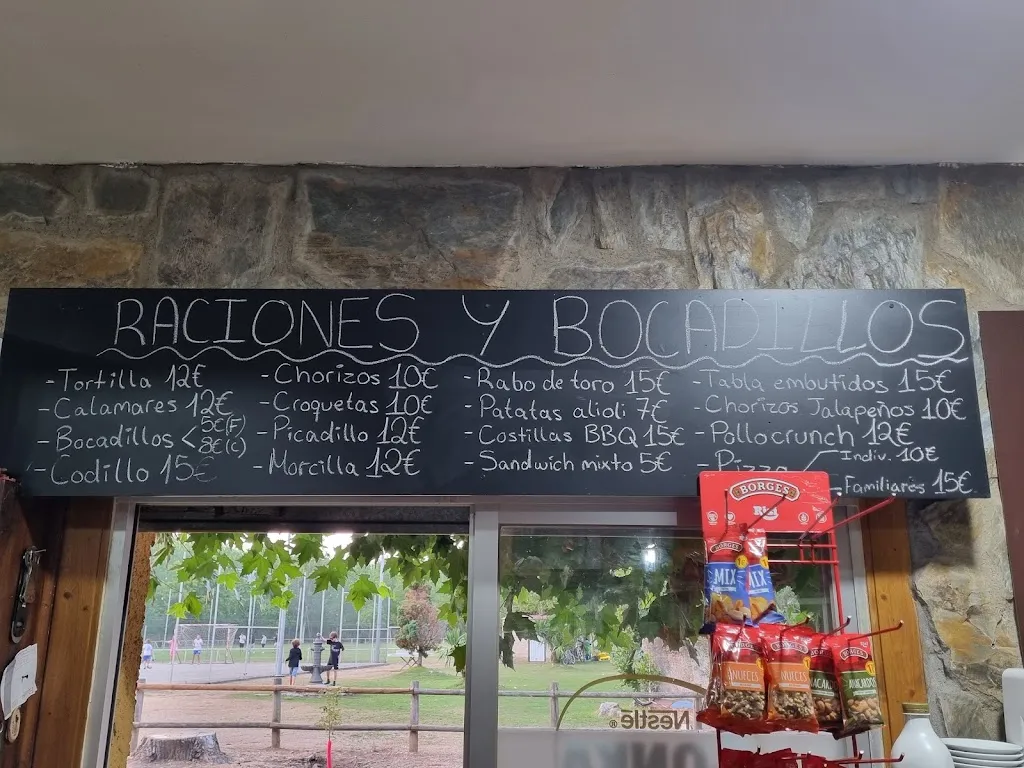 RACIONES Y BOCADILLOS
- Tortilla 12€
- Calamares 12€
- Bocadillos < 5€(F)
8€(C)
- Codillo 15€
- Chorizos 10€
- Croquetas 10€
- Picadillo 12€
- Morcilla 12€
- Rabo de toro 15€
- Patatas alioli 7€
- Costillas BBQ 15€
- Sandwich mixto 5€
- Tabla embutidos 15€
- Chorizos Jalapeños 10€
- Pollo crunch 12€
- Pizza
Indiv. 10€
Familiares 15€
BORGES
BORGES
MIX
MIX
BORGES
NUECES
BORGES
NUECES
BORGES
Nestlē®